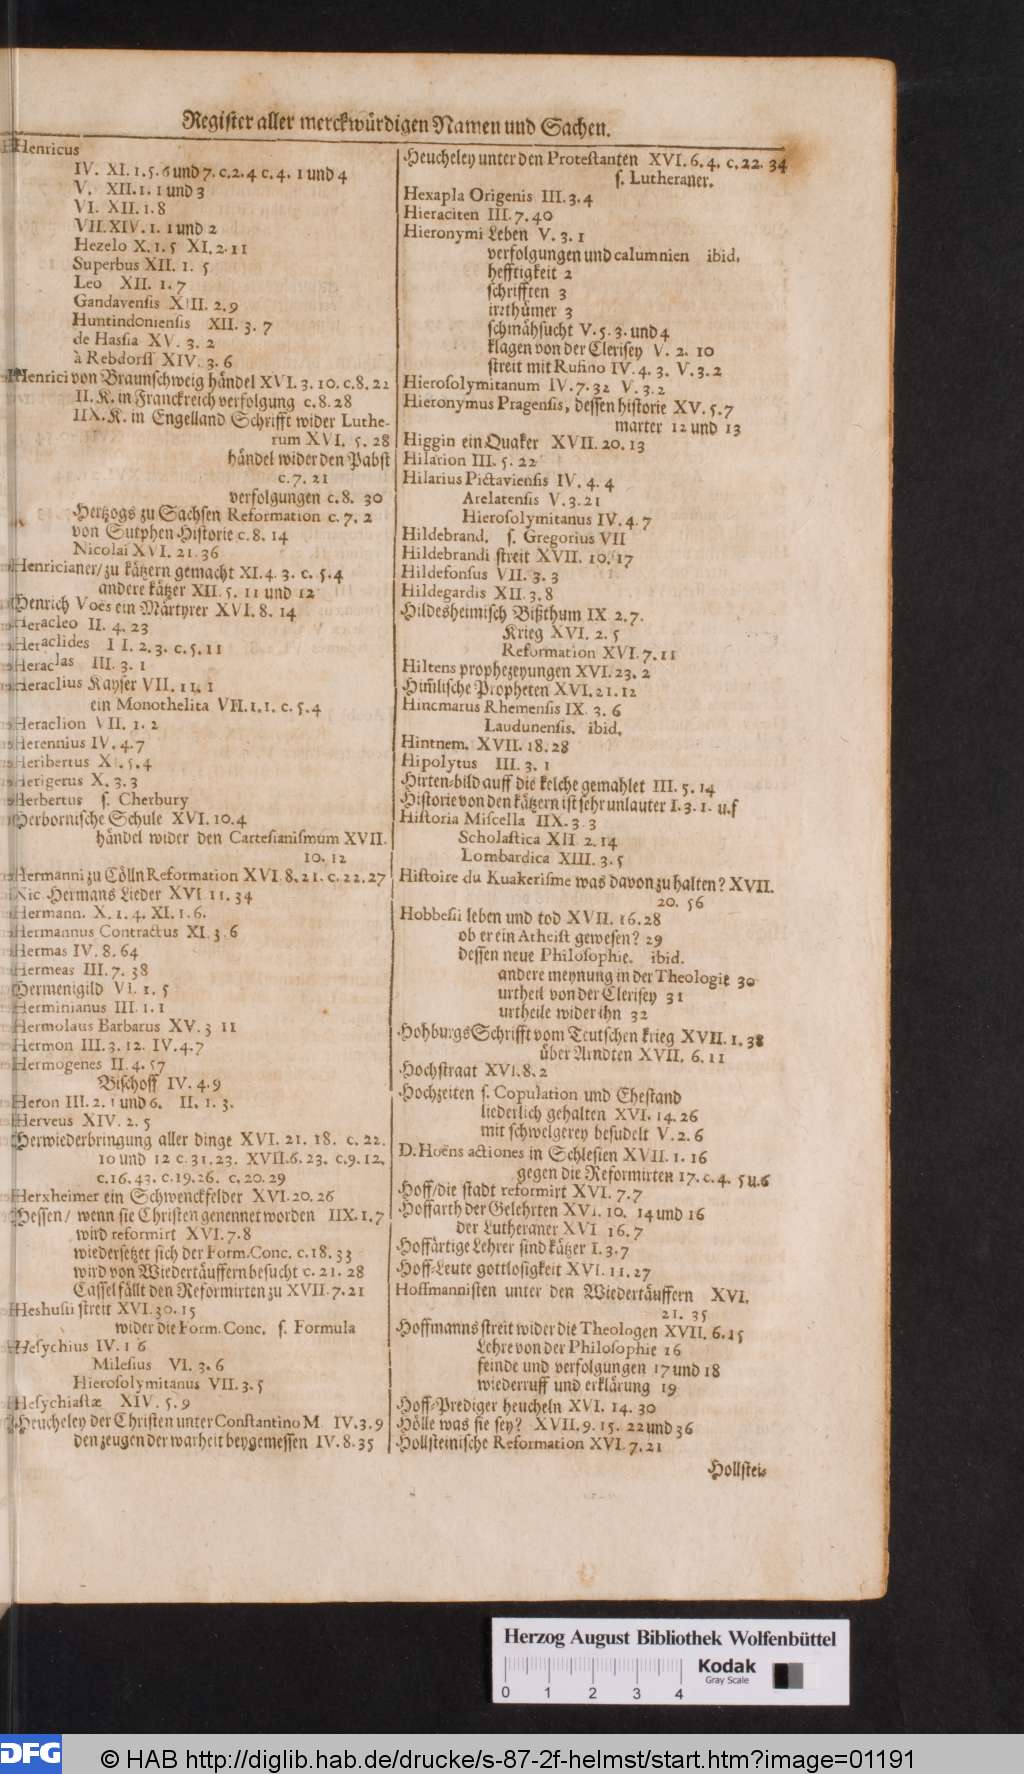 Register aller merckwürdigen Namen und Sachen.
Henricus
IV. XI. 1. 5. 6 und 7. c. 2. 4 c. 4. 1 und 4
V. XII. 1. 1 und 3
VI. XII. 1. 8
VII. XIV. 1. 1 und 2
Hezelo X. 1. 5 XI. 2. 11
Superbus XII. 1. 5
Leo XII. 1. 7
Gandavensis XIII. 2. 9
Huntindoniensis XII. 3. 7
de Hassia XV. 3. 2
à Rebdorff XIV. 3. 6
Henrici von Braunschweig händel XVI. 3. 10. c. 8. 22
II. K. in Franckreich verfolgung c. 8. 28
IIX. K. in Engelland Schrifft wider Luthe-
rum XVI. 5. 28
händel wider den Pabst
c. 7. 21
verfolgungen c. 8. 30
Hertzogs zu Sachsen Reformation c. 7. 2
von Sutphen Historie c. 8. 14
Nicolai XVI. 21. 36
Henricianer/ zu kätzern gemacht XI. 4. 3. c. 5. 4
andere kätzer XII. 5. 11 und 12
Henrich Voës ein Märtyrer XVI. 8. 14
Heracleo II. 4. 23
Heraclides II. 2. 3. c. 5. 11
Heraclas III. 3. 1
Heraclius Kayser VII. 11. 1
ein Monothelita VII. 1. 1. c. 5. 4
Heraclion VII. 1. 2
Herennius IV. 4. 7
Heribertus XI. 5. 4
Herigerus X. 3. 3
Herbertus s. Cherbury
Herbornische Schule XVI. 10. 4
händel wider den Cartesianismum XVII.
10. 12
Hermanni zu Cölln Reformation XVI 8. 21. c. 22. 27
Nic. Hermans Lieder XVI 11. 34
Hermann. X. 1. 4. XI. 1. 6.
Hermannus Contractus XI. 3. 6
Hermas IV. 8. 64
Hermeas III. 7. 38
Hermenigild VI. 1. 5
Herminianus III. 1. 1
Hermolaus Barbarus XV. 3 11
Hermon III. 3. 12. IV. 4. 7
Hermogenes II. 4. 57
Bischoff IV. 4. 9
Heron III. 2. 1 und 6. II. 1. 3.
Herveus XIV. 2. 5
Herwiederbringung aller dinge XVI. 21. 18. c. 22.
10 und 12 c. 31. 23. XVII. 6. 23. c. 9. 12.
c. 16. 43. c. 19. 26. c. 20. 29
Herxheimer ein Schwenckfelder XVI. 20. 26
Hessen/ wenn sie Christen genennet worden IIX. 1. 7
wird reformirt XVI. 7. 8
wiedersetzet sich der Form. Conc. c. 18. 33
wird von Wiedertäuffern besucht c. 21. 28
Cassel fällt den Reformirten zu XVII. 7. 21
Heshusii streit XVI. 30. 15
wider die Form. Conc. s. Formula
Hesychius IV. 1 6
Milesius VI. 3. 6
Hierosolymitanus VII. 3. 5
Hesychiastæ XIV. 5. 9
Heucheley der Christen unter Constantino M. IV. 3. 9
den zeugen der warheit beygemessen IV. 8. 35
Heucheley unter den Protestanten XVI. 6. 4. c. 22. 34
s. Lutheraner.
Hexapla Origenis III. 3. 4
Hieraciten III. 7. 40
Hieronymi Leben V. 3. 1
verfolgungen und calumnien ibid.
hefftigkeit 2
schrifften 3
irrthümer 3
schmähsucht V. 5. 3. und 4
klagen von der Clerisey V. 2. 10
streit mit Rufino IV. 4. 3. V. 3. 2
Hierosolymitanum IV. 7. 32 V. 3. 2
Hieronymus Pragensis, dessen historie XV. 5. 7
marter 12 und 13
Higgin ein Quaker XVII. 20. 13
Hilarion III. 5. 22
Hilarius Pictaviensis IV. 4. 4
Arelatensis V. 3. 21
Hierosolymitanus IV. 4. 7
Hildebrand. s. Gregorius VII
Hildebrandi streit XVII. 10. 17
Hildefonsus VII. 3. 3
Hildegardis XII. 3. 8
Hildesheimisch Bißthum IX 2. 7.
Krieg XVI. 2. 5
Reformation XVI. 7. 11
Hiltens prophezeyungen XVI. 23. 2
Him̃lische Propheten XVI. 21. 12
Hincmarus Rhemensis IX. 3. 6
Laudunensis. ibid.
Hintnem. XVII. 18. 28
Hipolytus III. 3. 1
Hirten-bild auff die kelche gemahlet III. 5. 14
Historie von den kätzern ist sehr unlauter I. 3. 1. u. f
Historia Miscella IIX. 3 3
Scholastica XII 2. 14
Lombardica XIII. 3. 5
Histoire du Kuakerisme was davon zu halten? XVII.
20. 56
Hobbesii leben und tod XVII. 16. 28
ob er ein Atheist gewesen? 29
dessen neue Philosophie. ibid.
andere meynung in der Theologie 30
urtheil von der Clerisey 31
urtheile wider ihn 32
Hohburgs Schrifft vom Teutschen krieg XVII. 1. 38
über Arndten XVII. 6. 11
Hochstraat XVI. 8. 2
Hochzeiten s. Copulation und Ehestand
liederlich gehalten XVI. 14. 26
mit schwelgerey besudelt V. 2. 6
D. Hoëns actiones in Schlesien XVII. 1. 16
gegen die Reformirten 17. c. 4. 5 u. 6
Hoff/ die stadt reformirt XVI. 7. 7
Hoffarth der Gelehrten XVI. 10. 14 und 16
der Lutheraner XVI 16. 7
Hoffärtige Lehrer sind kätzer I. 3. 7
Hoff-Leute gottlosigkeit XVI. 11. 27
Hoffmannisten unter den Wiedertäuffern XVI.
21. 35
Hoffmanns streit wider die Theologen XVII. 6. 15
Lehre von der Philosophie 16
feinde und verfolgungen 17 und 18
wiederruff und erklärung 19
Hoff-Prediger heucheln XVI. 14. 30
Hölle was sie sey? XVII. 9. 15. 22 und 36
Hollsteinische Reformation XVI. 7. 21
Hollstei-
Herzog August Bibliothek Wolfenbüttel
Kodak
Gray Scale
0 1 2 3 4
DFG
© HAB http://diglib.hab.de/drucke/s-87-2f-helmst/start.htm?image=01191